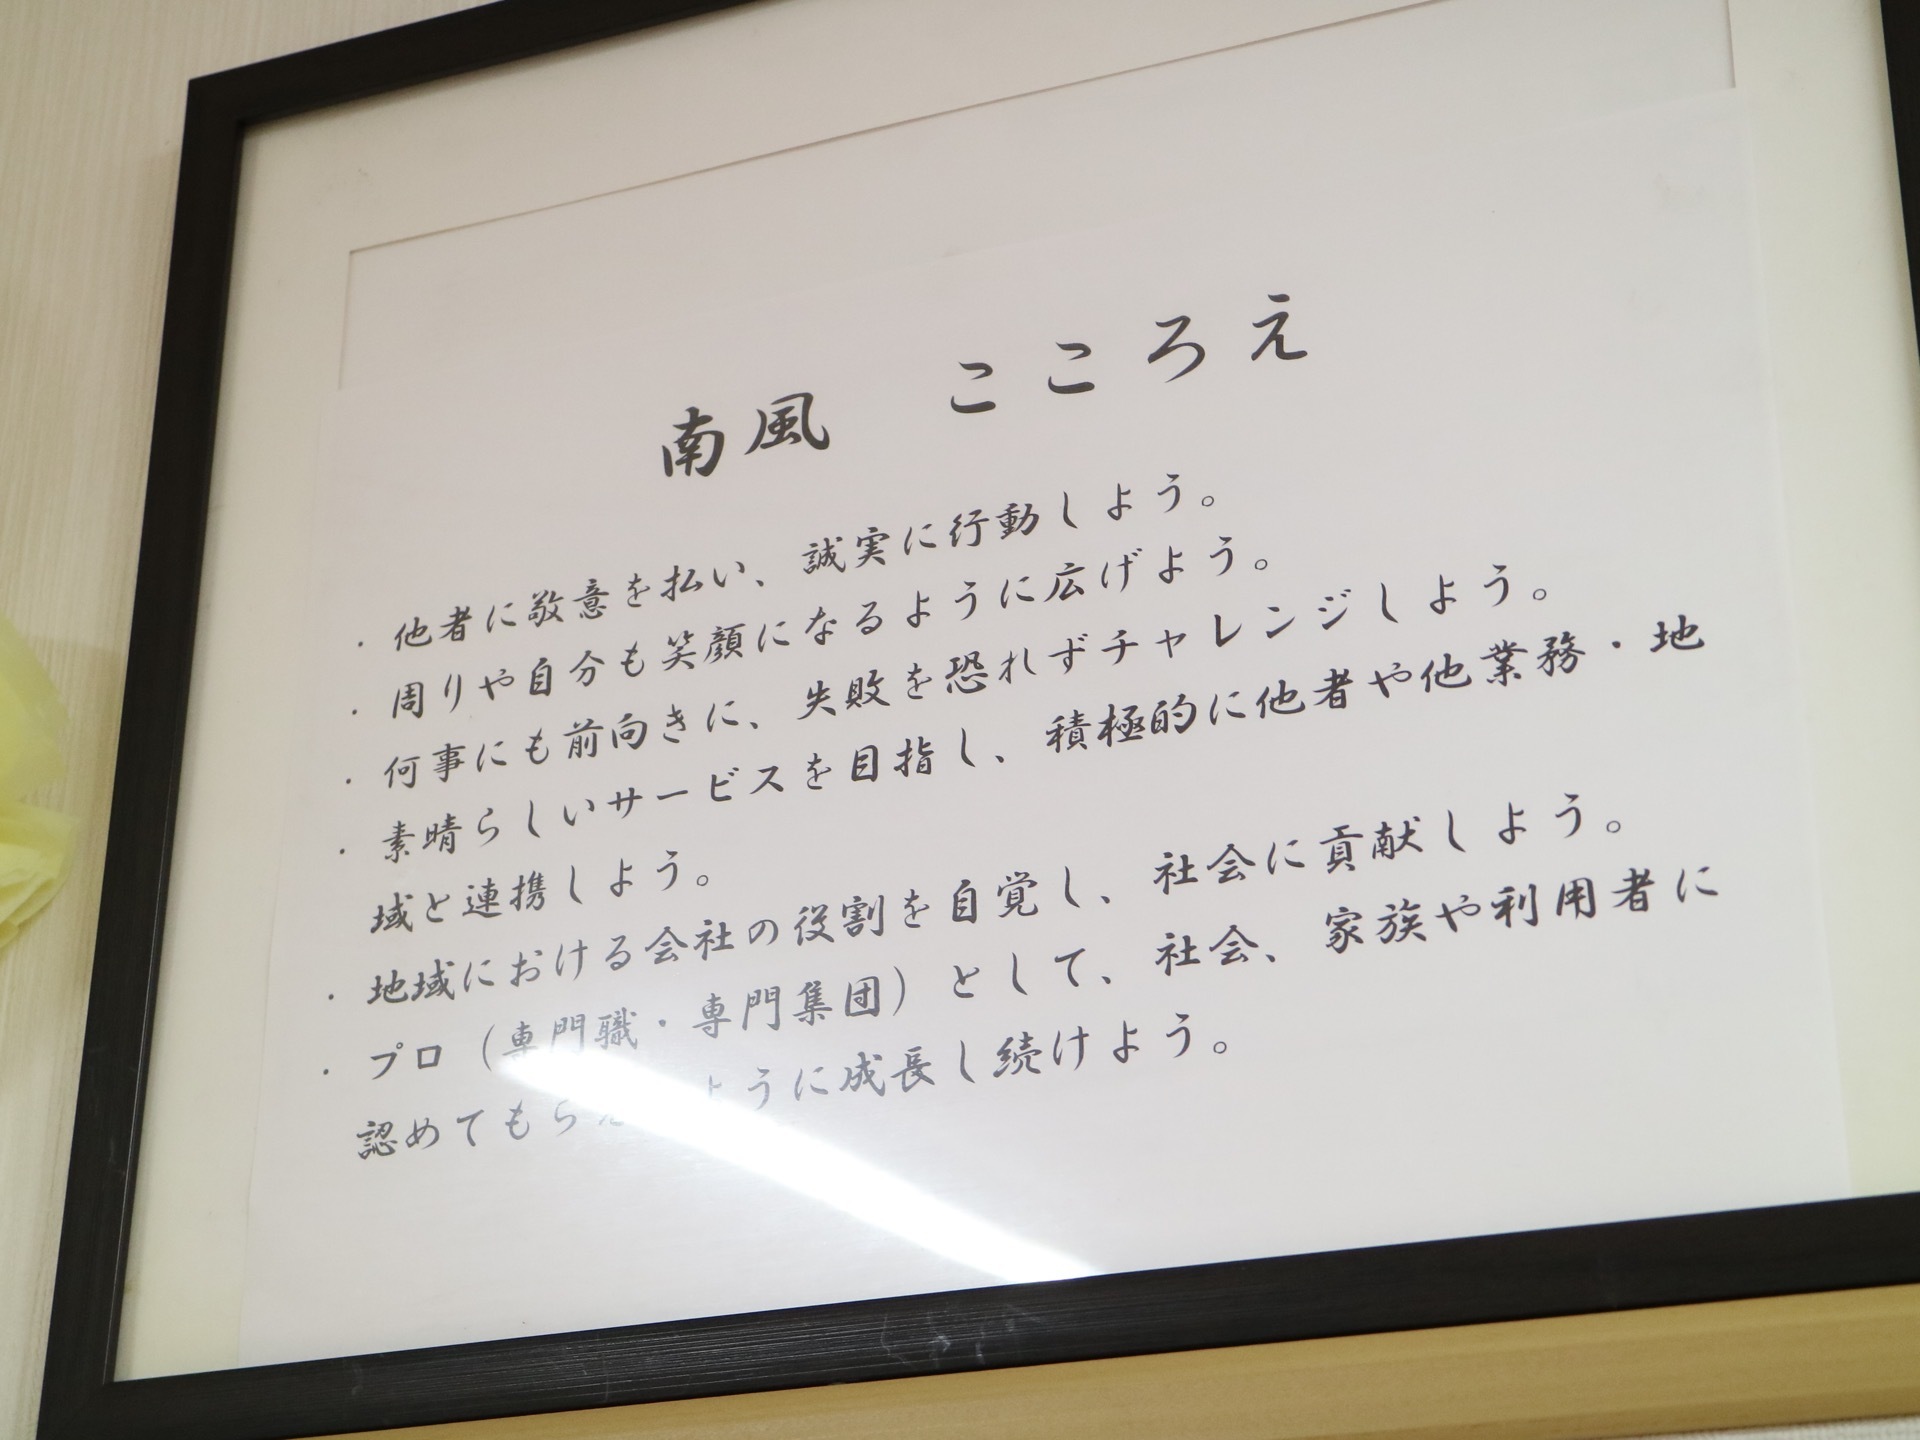 南風　こころえ
・他者に敬意を払い、誠実に行動しよう。
・周りや自分も笑顔になるように広げよう。
・何事にも前向きに、失敗を恐れずチャレンジしよう。
・素晴らしいサービスを目指し、積極的に他者や他業務・地
域と連携しよう。
・地域における会社の役割を自覚し、社会に貢献しよう。
・プロ（専門職・専門集団）として、社会、家族や利用者に
認めてもらえ ように成長し続けよう。